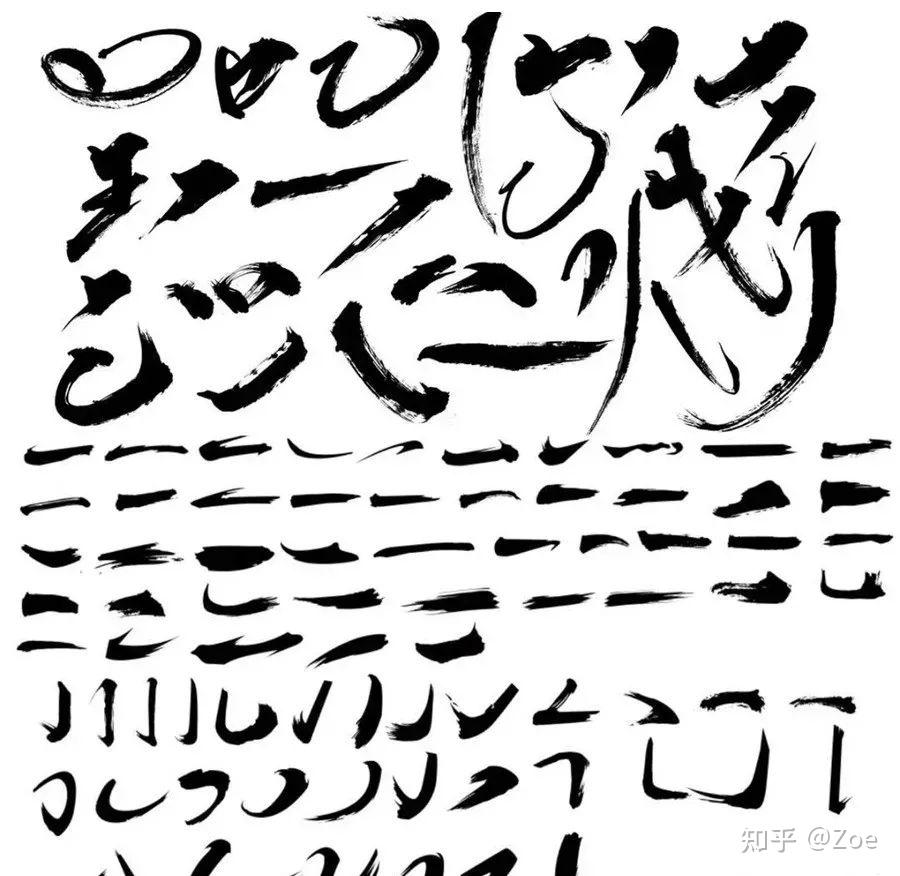 知乎 @Zoe